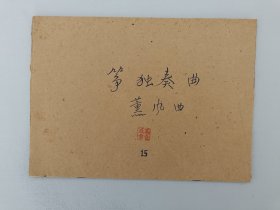 筝独奏曲
薰风曲
15